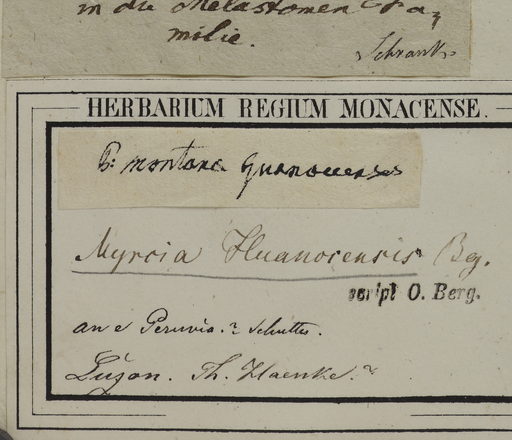 in die Melastomen Fa,
milie.
Schrank.
HERBARIUM REGIUM MONACENSE.
P: montana guanoucenses
Myrcia Huanocensis Bg.
script O. Berg.
an e Peruvia.? Schultes.
Luzon. Th. Haenke.?